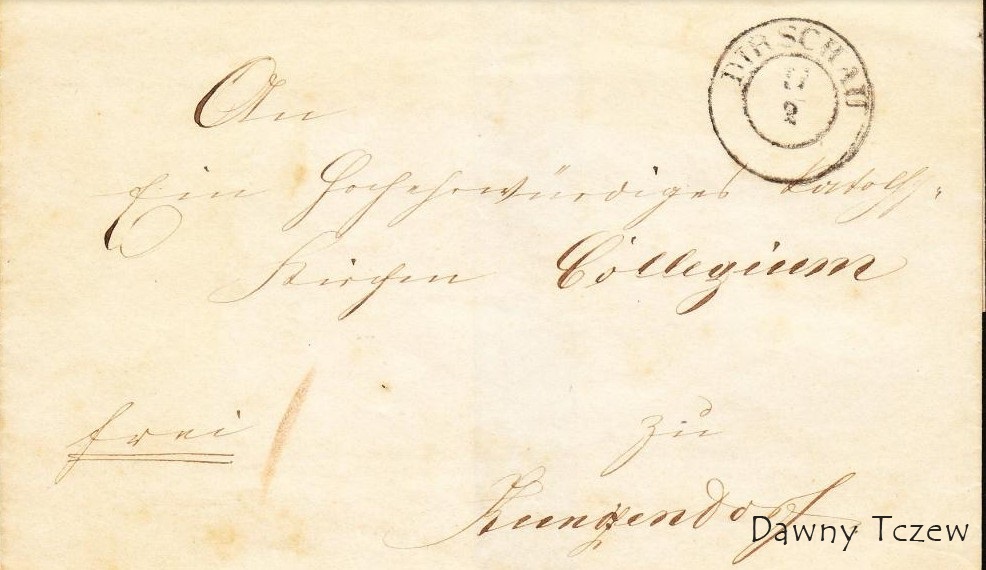 DIRSCHAU
2
An
Ein Hochehrwürdiges
Kirchen Collegium
frei
zu
Kunzendorf
Dawny Tczew